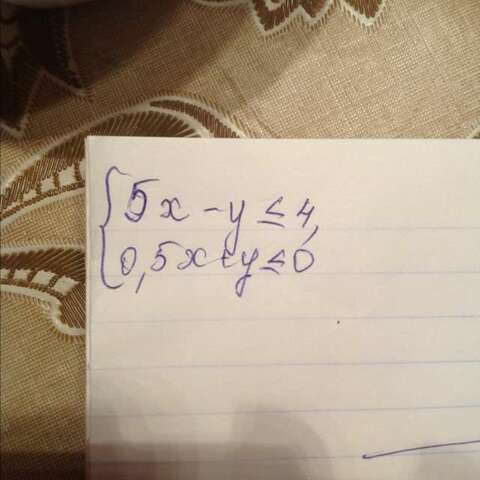 {5x - y ≤ 4,
0,5x + y ≤ 0